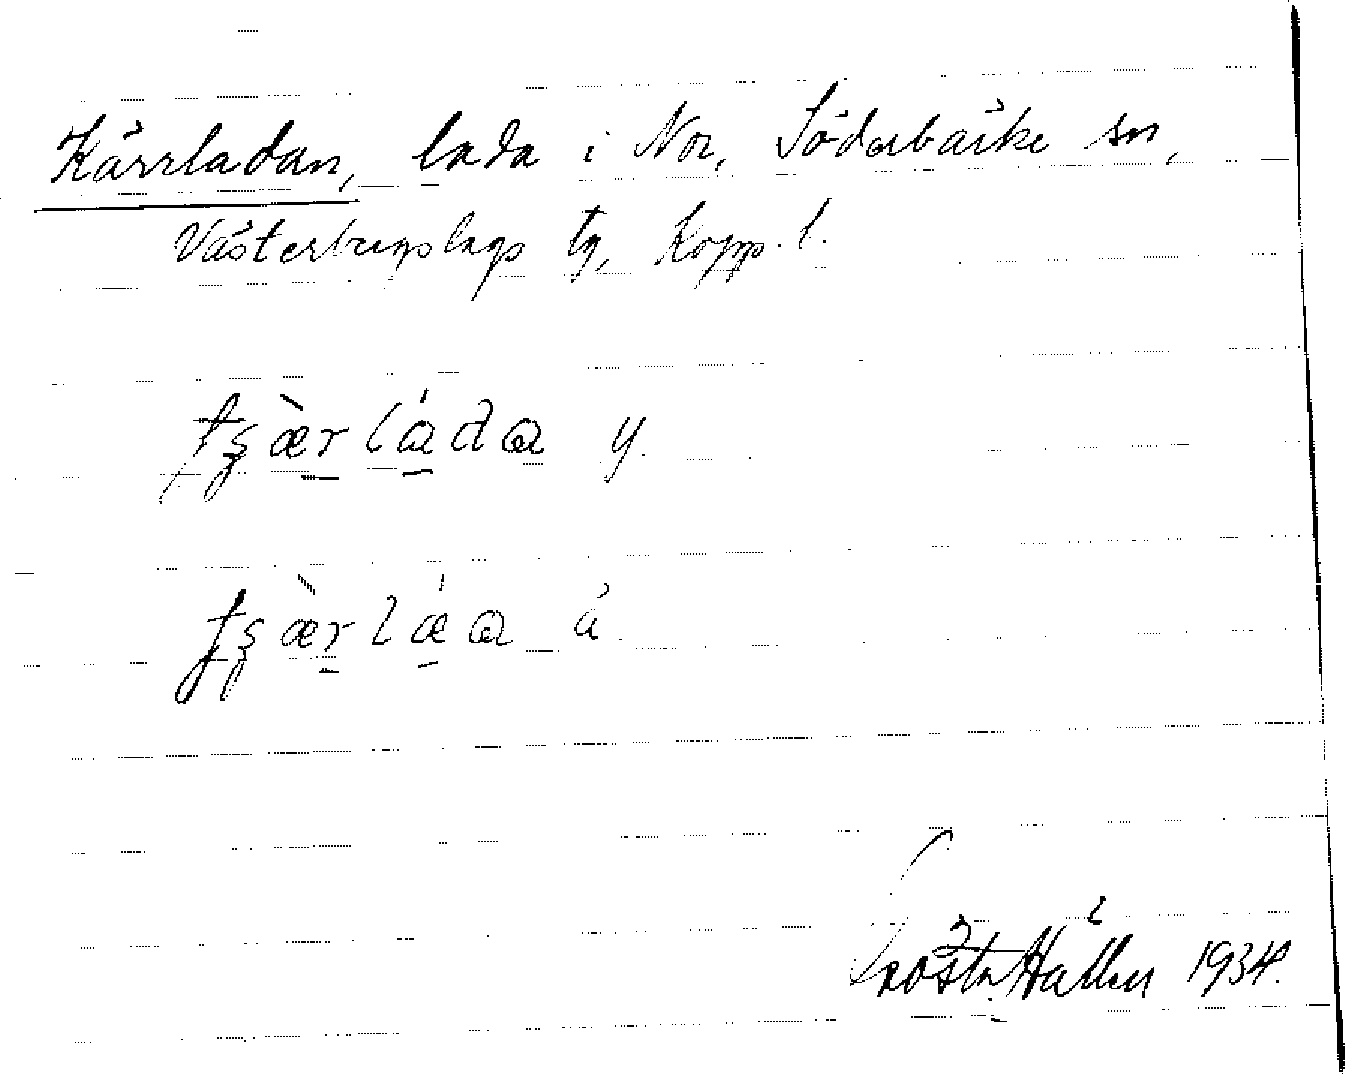 Kärrladan, lada i Nor, Söderbärke sn,
Västerbergslags tg, Kopp. l.
tʂæ̀rláda y.
tʂæ̀rlǽa ä.
Gösta Hallen 1934.